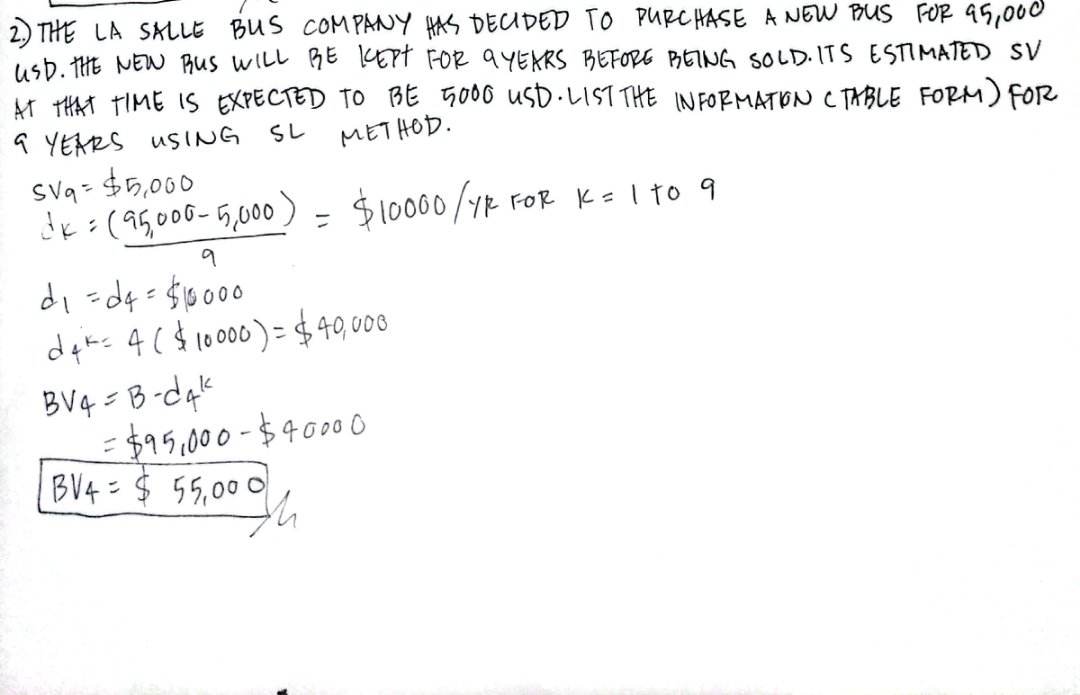 2.) THE LA SALLE BUS COMPANY HAS DECIDED TO PURCHASE A NEW BUS FOR 95,000
USD. THE NEW BUS WILL BE KEPT FOR 9 YEARS BEFORE BEING SOLD. ITS ESTIMATED SV
AT THAT TIME IS EXPECTED TO BE 5000 USD. LIST THE INFORMATION (TABLE FORM) FOR
9 YEARS USING SL METHOD.
SV9 = $5,000
dk = (95,000 - 5,000) / 9 = $10000/YR FOR K = 1 TO 9
d1 = d4 = $10000
d4k = 4($10000) = $40,000
BV4 = B - d4k
= $95,000 - $40000
BV4 = $ 55,000